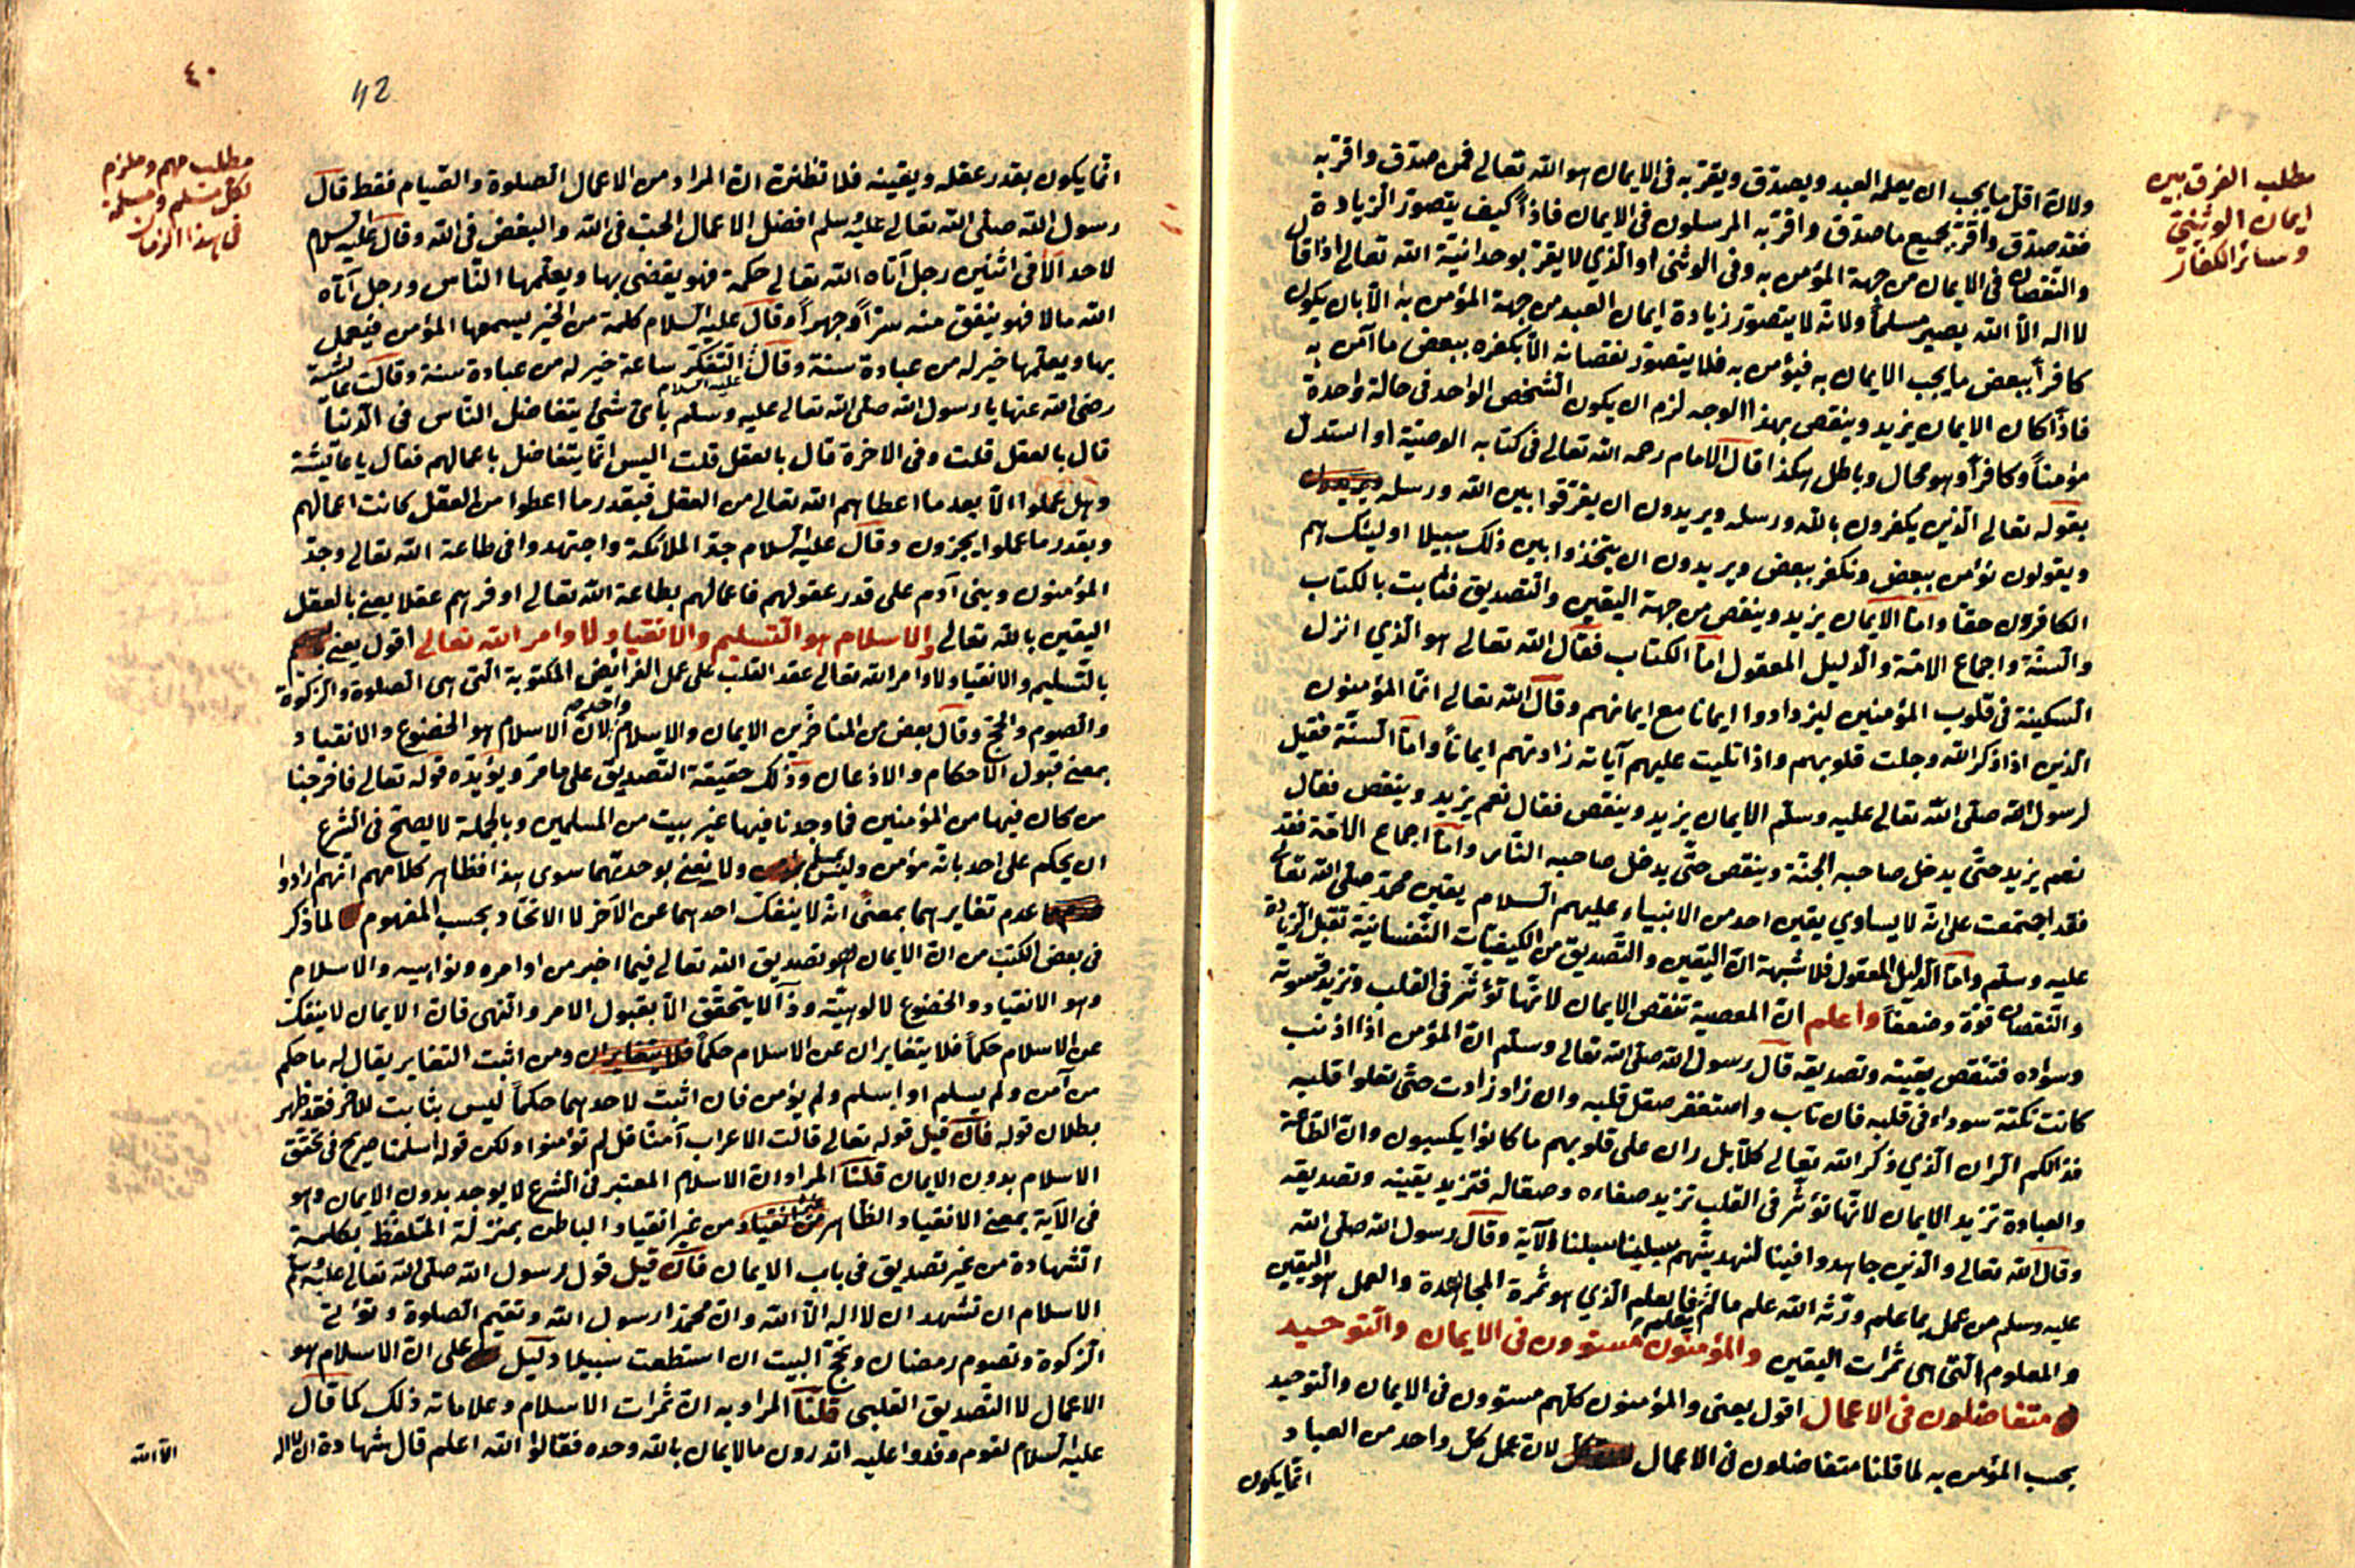 مطلب الفرق بين
ايمان الوثنى
وسائر الكفار
ولان اقل ما يجب ان يعلمه العبد ويصدق ويقر به فى الايمان هو الله تعالى فمن صدق واقر به
فقد صدق واقر بجميع ما صدق واقر به المرسلون فى الايمان فاذاً كيف يتصور الزيادة
والنقصان فى الايمان من جهة المؤمن به وفى الوثنى او الذي لا يقر بوحدانية الله تعالى اذا قال
لا اله الا الله يصير مسلماً ولانه لا يتصور زيادة ايمان العبد من جهة المؤمن به الا بان يكون
كافراً ببعض ما يجب الايمان به فيؤمن به فلا يتصور نقصانه الا بكفره ببعض ما آمن به
فاذا كان الايمان يزيد وينقص بهذا الوجه لزم ان يكون الشخص الواحد فى حالة واحدة
مؤمناً وكافراً وهو محال وباطل هكذا قال الامام رحمه الله تعالى فى كتابه الوصية او استدل
بقوله تعالى الذين يكفرون بالله ورسله ويريدون ان يفرقوا بين الله ورسله
ويقولون نؤمن ببعض ونكفر ببعض ويريدون ان يتخذوا بين ذلك سبيلا اولئك هم
الكافرون حقا واما الايمان يزيد وينقص من جهة اليقين والتصديق فثابت بالكتاب
والسنة واجماع الامة والدليل المعقول اما الكتاب فقال الله تعالى هو الذي انزل
السكينة فى قلوب المؤمنين ليزدادوا ايمانا مع ايمانهم وقال الله تعالى انما المؤمنون
الذين اذا ذكر الله وجلت قلوبهم واذا تليت عليهم آياته زادتهم ايماناً واما السنة فقيل
لرسول الله صلى الله تعالى عليه وسلم الايمان يزيد وينقص فقال نعم يزيد وينقص فقال
نعم يزيد حتى يدخل صاحبه الجنة وينقص حتى يدخل صاحبه النار واما اجماع الامة فقد
فقد اجتمعت على انه لا يساوي يقين احد من الانبياء عليهم السلام يقين محمد صلى الله تعالى
عليه وسلم واما الدليل المعقول فلا شبهة ان اليقين والتصديق من الكيفيات النفسانية تقبل الزيادة
والنقصان قوة وضعفاً واعلم ان المعصية تنقص الايمان لانها تؤثر فى القلب وتزيد قسوته
وسواده فتنقص يقينه وتصديقه قال رسول الله صلى الله تعالى وسلم ان المؤمن اذا اذنب
كانت نكتة سوداء فى قلبه فان تاب واستغفر صقل قلبه وان زاد زادت حتى تعلوا قلبه
فذالكم الران الذي ذكر الله تعالى كلا بل ران على قلوبهم ما كانوا يكسبون وان الطاعة
والعبادة تزيد الايمان لانها تؤثر فى القلب تزيد صفاءه وصقاله فتزيد يقينه وتصديقه
وقال الله تعالى والذين جاهدوا فينا لنهدينهم سبلنا الآية وقال رسول الله صلى الله
عليه وسلم من عمل بما علم ورثه الله علم ما لم يعلم فالعلم الذي هو ثمرة المجاهدة والعمل هو اليقين
والمعلوم التى هى ثمرات اليقين والمؤمنون مستوون فى الايمان والتوحيد
متفاضلون فى الاعمال اقول يعنى والمؤمنون كلهم مستوون فى الايمان والتوحيد
بحسب المؤمن به لما قلنا متفاضلون فى الاعمال لان عمل كل واحد من العباد
انما يكون
٤٠
42
مطلب مهم وملزم
لكل مسلم ومسلمة
فى هذا الزمان
انما يكون بقدر عقله ويقينه فلا تظنن ان المراد من الاعمال الصلوة والصيام فقط قال
رسول الله صلى الله تعالى عليه وسلم افضل الاعمال الحب فى الله والبغض فى الله وقال عليه السلام
لا حد الا فى اثنين رجل آتاه الله تعالى حكمة فهو يقضى بها ويعلمها الناس ورجل آتاه
الله مالا فهو ينفق منه سراً وجهراً وقال عليه السلام كلمة من الخير يسمعها المؤمن فيعمل
بها ويعلمها خير له من عبادة سنة وقال عليه السلام التفكر ساعة خير له من عبادة سنة وقالت عائشة
رضى الله عنها يا رسول الله صلى الله تعالى عليه وسلم بأى شئ يتفاضل الناس فى الدنيا
قال بالعقل قلت وفى الاخرة قال بالعقل قلت اليس انما يتفاضل باعمالهم فقال يا عائشة
وهل عملوا الا بعد ما اعطاهم الله تعالى من العقل فبقدر ما اعطوا من العقل كانت اعمالهم
وبقدر ما عملوا يجزون وقال عليه السلام جد الملائكة واجتهدوا فى طاعة الله تعالى وجد
المؤمنون وبنى آدم على قدر عقولهم فاعمالهم بطاعة الله تعالى اوفرهم عقلا يعنى بالعقل
اليقين بالله تعالى والاسلام هو التسليم والانقياد لاوامر الله تعالى اقول يعنى
بالتسليم والانقياد لاوامر الله تعالى عقد القلب على عمل الفرائض المكتوبة التى هى الصلوة والزكوة
والصوم والحج وقال بعض من المتأخرين الايمان والاسلام واحد لان الاسلام هو الخضوع والانقياد
بمعنى قبول الاحكام والاذعان وذلك حقيقة التصديق على ما مر ويؤيده قوله تعالى فاخرجنا
من كان فيها من المؤمنين فما وجدنا فيها غير بيت من المسلمين وبالجملة لا يصح فى الشرع
ان يحكم على احد بانه مؤمن وليس بمسلم ولا نعنى بوحدتهما سوى هذا فظاهر كلامهم انهم ارادوا
عدم تغايرهما بمعنى انه لا ينفك احدهما عن الآخر لا الاتحاد بحسب المفهوم لما ذكر
فى بعض الكتب من ان الايمان هو تصديق الله تعالى فيما اخبر من اوامره ونواهيه والاسلام
وهو الانقياد والخضوع لالوهيته وذا لا يتحقق الا بقبول الامر والنهى فان الايمان لا ينفك
عن الاسلام حكماً فلا يتغايران عن الاسلام حكماً فلا يتغايران ومن اثبت التغاير يقال له ما حكم
من آمن ولم يسلم او اسلم ولم يؤمن فان اثبت لاحدهما حكماً ليس بثابت للآخر فقد ظهر
بطلان قوله فان قيل قوله تعالى قالت الاعراب آمنا قل لم تؤمنوا ولكن قولوا اسلمنا صريح فى تحقق
الاسلام بدون الايمان قلنا المراد ان الاسلام المعتبر فى الشرع لا يوجد بدون الايمان وهو
فى الآية بمعنى الانقياد الظاهر من غير انقياد الباطن بمنزلة المتلفظ بكلمة
الشهادة من غير تصديق فى باب الايمان فان قيل قول رسول الله صلى الله تعالى عليه وسلم
الاسلام ان تشهد ان لا اله الا الله وان محمدا رسول الله وتقيم الصلوة وتؤتى
الزكوة وتصوم رمضان وتحج البيت ان استطعت سبيلا دليل على ان الاسلام هو
الاعمال لا التصديق القلبى قلنا المراد به ان ثمرات الاسلام وعلاماته ذلك كما قال
عليه السلام لقوم وفدوا عليه اتدرون ما الايمان بالله وحده فقالوا الله اعلم قال شهادة ان لا اله
الا الله